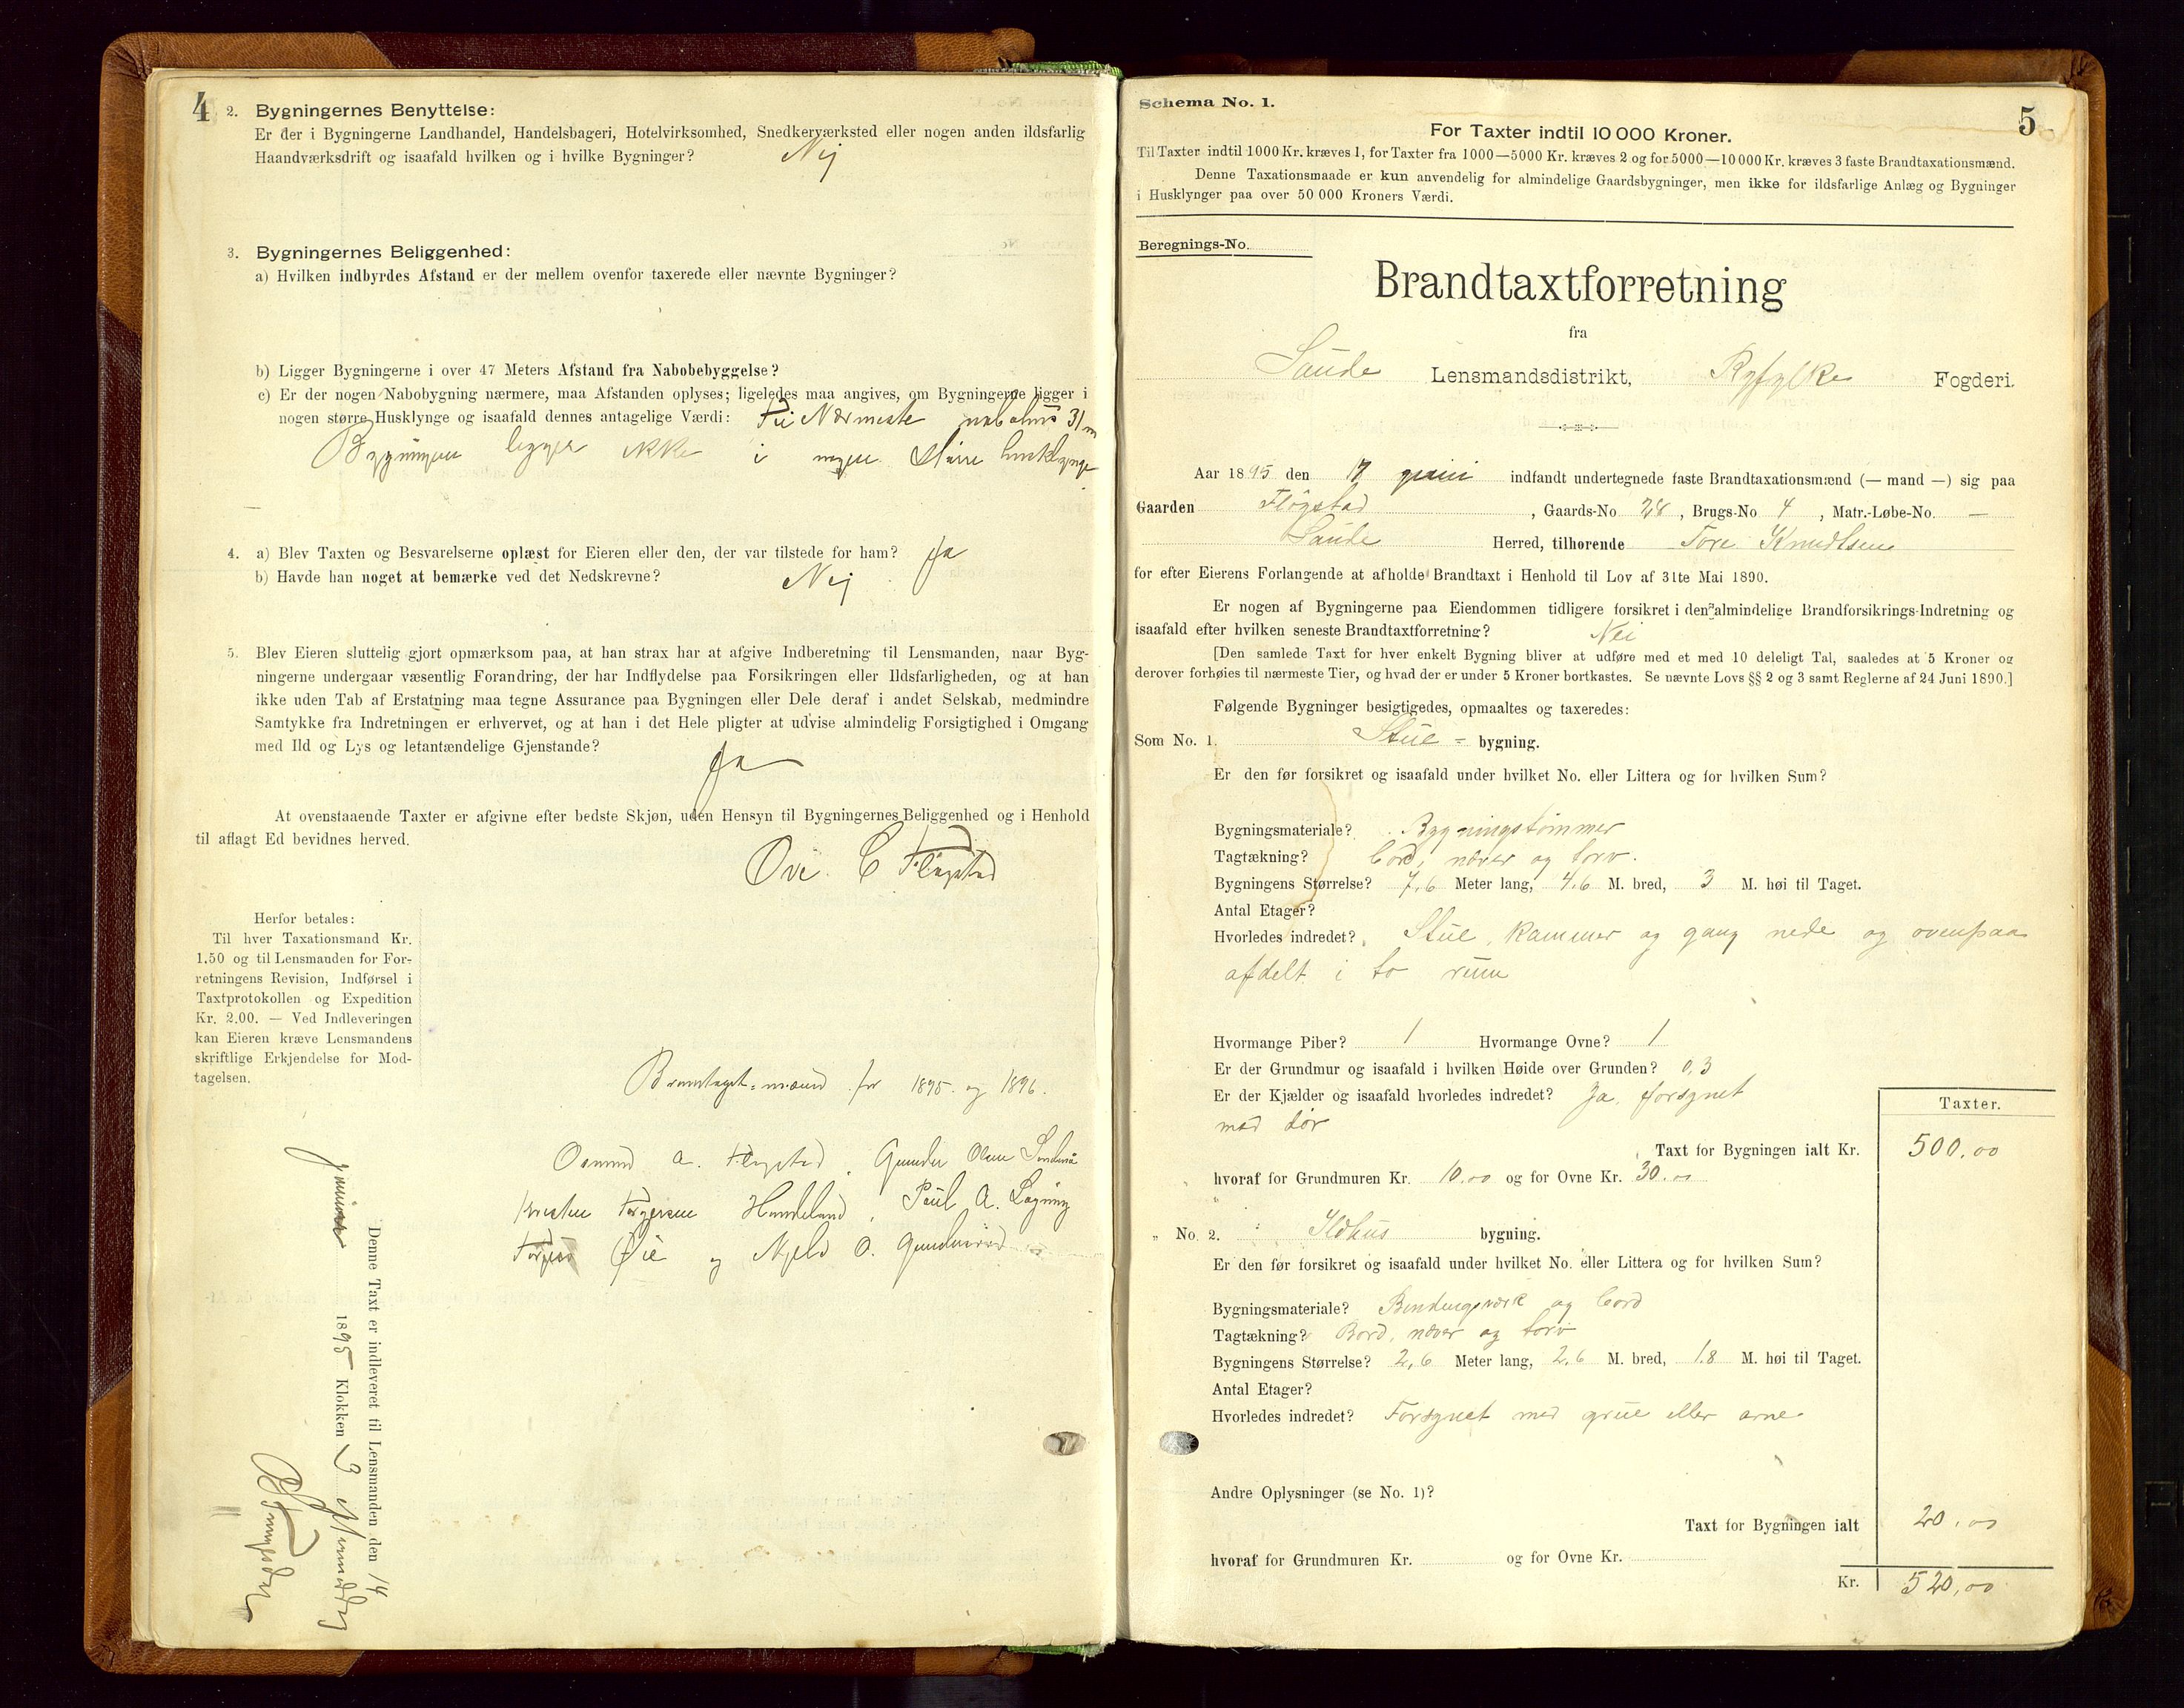 4
2. Bygningernes Benyttelse:
Er der i Bygningerne Landhandel, Handelsbageri, Hotelvirksomhed, Snedkerværksted eller nogen anden ildsfarlig
Haandværksdrift og isaafald hvilken og i hvilke Bygninger? Nej
3. Bygningernes Beliggenhed:
a) Hvilken indbyrdes Afstand er der mellem ovenfor taxerede eller nævnte Bygninger?
b) Ligger Bygningerne i over 47 Meters Afstand fra Nabobebyggelse?
c) Er der nogen Nabobygning nærmere, maa Afstanden oplyses; ligeledes maa angives, om Bygningerne ligger i
nogen større Husklynge og isaafald dennes antagelige Værdi: Til Nærmeste nabohus 31 m
Bygningen ligger ikke i nogen større husklynge
4. a) Blev Taxten og Besvarelserne oplæst for Eieren eller den, der var tilstede for ham? Ja
b) Havde han noget at bemærke ved det Nedskrevne? Nej
5. Blev Eieren sluttelig gjort opmærksom paa, at han strax har at afgive Indberetning til Lensmanden, naar Byg-
ningerne undergaar væsentlig Forandring, der har Indflydelse paa Forsikringen eller Ildsfarligheden, og at han
ikke uden Tab af Erstatning maa tegne Assurance paa Bygningen eller Dele deraf i andet Selskab, medmindre
Samtykke fra Indretningen er erhvervet, og at han i det Hele pligter at udvise almindelig Forsigtighed i Omgang
med Ild og Lys og letantændelige Gjenstande?
Ja
At ovenstaaende Taxter er afgivne efter bedste Skjøn, uden Hensyn til Bygningernes Beliggenhed og i Henhold
til aflagt Ed bevidnes herved.
Ove C Fløgstad
Herfor betales:
Til hver Taxationsmand Kr.
1.50 og til Lensmanden for For-
retningens Revision, Indførsel i
Taxtprotokollen og Expedition
Kr. 2.00. — Ved Indleveringen
kan Eieren kræve Lensmandens
skriftlige Erkjendelse for Mod-
tagelsen.
for 1895 og 1896.
Osmund A. Fløgstad, Gunder Olsen
Handeland, Poul A.
Øie og O.
Denne Taxt er indleveret til Lensmanden den 14
1895 Klokken 3
Schema No. 1.
5
For Taxter indtil 10 000 Kroner.
Til Taxter indtil 1000 Kr. kræves 1, for Taxter fra 1000—5000 Kr. kræves 2 og for 5000—10 000 Kr. kræves 3 faste Brandtaxationsmænd.
Denne Taxationsmaade er kun anvendelig for almindelige Gaardsbygninger, men ikke for ildsfarlige Anlæg og Bygninger
i Husklynger paa over 50 000 Kroners Værdi.
Beregnings-No.
Brandtaxtforretning
fra
Saude Lensmandsdistrikt, Ryfylke Fogderi.
Aar 1895 den 17 juni indfandt undertegnede faste Brandtaxationsmænd (— mand —) sig paa
Gaarden Fløgstad, Gaards-No 28, Brugs-No 4, Matr.-Løbe-No. —
Saude Herred, tilhørende Tore Knudtsen
for efter Eierens Forlangende at afholde Brandtaxt i Henhold til Lov af 31te Mai 1890.
Er nogen af Bygningerne paa Eiendommen tidligere forsikret i den almindelige Brandforsikrings-Indretning og
isaafald efter hvilken seneste Brandtaxtforretning? Nei
[Den samlede Taxt for hver enkelt Bygning bliver at udføre med et med 10 deleligt Tal, saaledes at 5 Kroner og
derover forhøies til nærmeste Tier, og hvad der er under 5 Kroner bortkastes. Se nævnte Lovs §§ 2 og 3 samt Reglerne af 24 Juni 1890.]
Følgende Bygninger besigtigedes, opmaaltes og taxeredes:
Som No. 1. Stue - bygning.
Er den før forsikret og isaafald under hvilket No. eller Littera og for hvilken Sum?
Bygningsmateriale? Bygningstømmer
Tagtækning? bord, næver og torv.
Bygningens Størrelse? 7,6 Meter lang, 4,6 M. bred, 3 M. høi til Taget.
Antal Etager?
Hvorledes indredet? Stue, kammer og gang nede og ovenpaa
afdelt i to rum
Hvormange Piber? 1 Hvormange Ovne? 1
Er der Grundmur og isaafald i hvilken Høide over Grunden? 0,3
Er der Kjælder og isaafald hvorledes indredet? Ja, forsynet
med dør
Taxter.
Taxt for Bygningen ialt Kr. 500,00
hvoraf for Grundmuren Kr. 10,00 og for Ovne Kr. 30,00
" No. 2. Ildhus bygning.
Er den før forsikret og isaafald under hvilket No. eller Littera og for hvilken Sum?
Bygningsmateriale? Bindingsværk og bord
Tagtækning? Bord, næver og torv
Bygningens Størrelse? 2,6 Meter lang, 2,6 M. bred, 1.8 M. høi til Taget.
Antal Etager?
Hvorledes indredet? Forsynet med grue eller arne
Andre Oplysninger (se No. 1)?
Taxt for Bygningen ialt 20,00
hvoraf for Grundmuren Kr. og for Ovne Kr.
Kr. 520,00